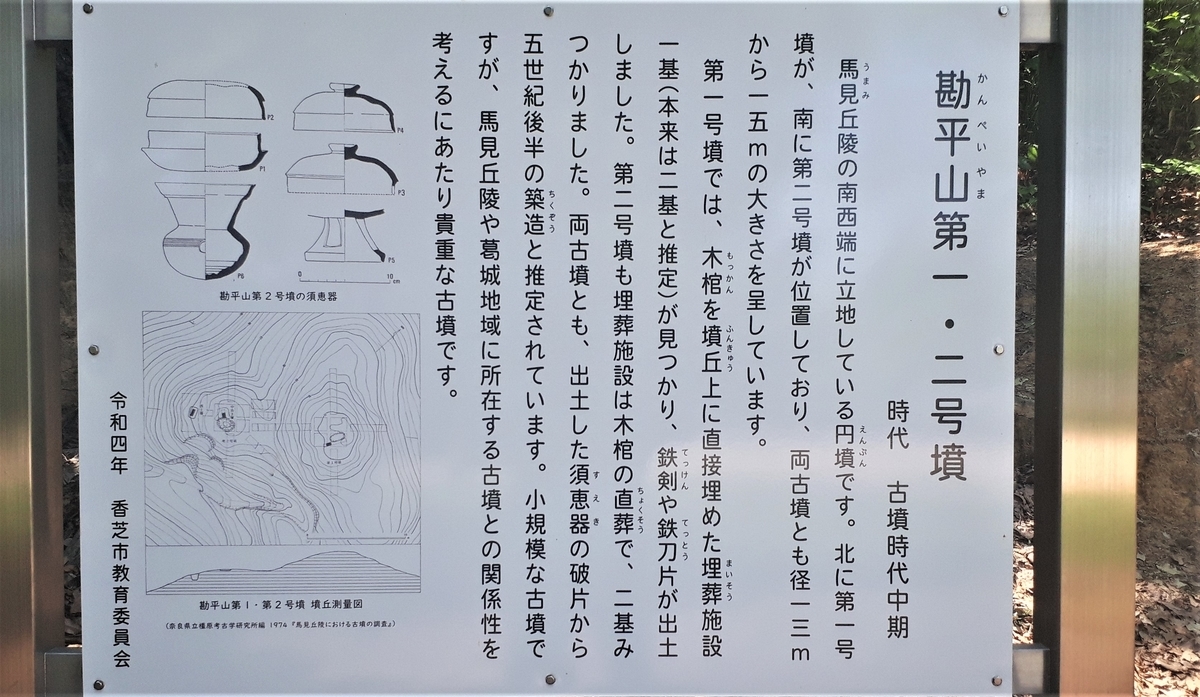 勘平山第一・二号墳
かんぺいやま
時代　古墳時代中期
馬見丘陵の南西端に立地している円墳です。北に第一号
うまみ
えんぷん
墳が、南に第二号墳が位置しており、両古墳とも径一三ｍ
から一五ｍの大きさを呈しています。
第一号墳では、木棺を墳丘上に直接埋めた埋葬施設
もっかん
ふんきゅう
まいそう
一基（本来は二基と推定）が見つかり、鉄剣や鉄刀片が出土
てっけん
てっとう
しました。第二号墳も埋葬施設は木棺の直葬で、二基み
ちょくそう
つかりました。両古墳とも、出土した須恵器の破片から
すえき
五世紀後半の築造と推定されています。小規模な古墳で
ちくぞう
すが、馬見丘陵や葛城地域に所在する古墳との関係性を
考えるにあたり貴重な古墳です。
P2
P4
P1
P3
P6
P5
0　10
cm
勘平山第２号墳の須恵器
勘平山第１・第２号墳 墳丘測量図
（奈良県立橿原考古学研究所編 1974『馬見丘陵における古墳の調査』）
令和四年　香芝市教育委員会